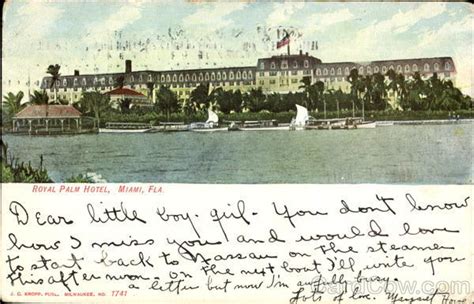 ROYAL PALM HOTEL, MIAMI, FLA.
Dear little boy-girl- You don't know
how I miss you and would love
to start back to Nassau on the steamer
this afternoon- On the next boat I'll write you
a letter but now I'm awfully busy.
Lots of love
J. O. KROPP, PUBL., MILWAUKEE, NO. 7741
CardCow.com